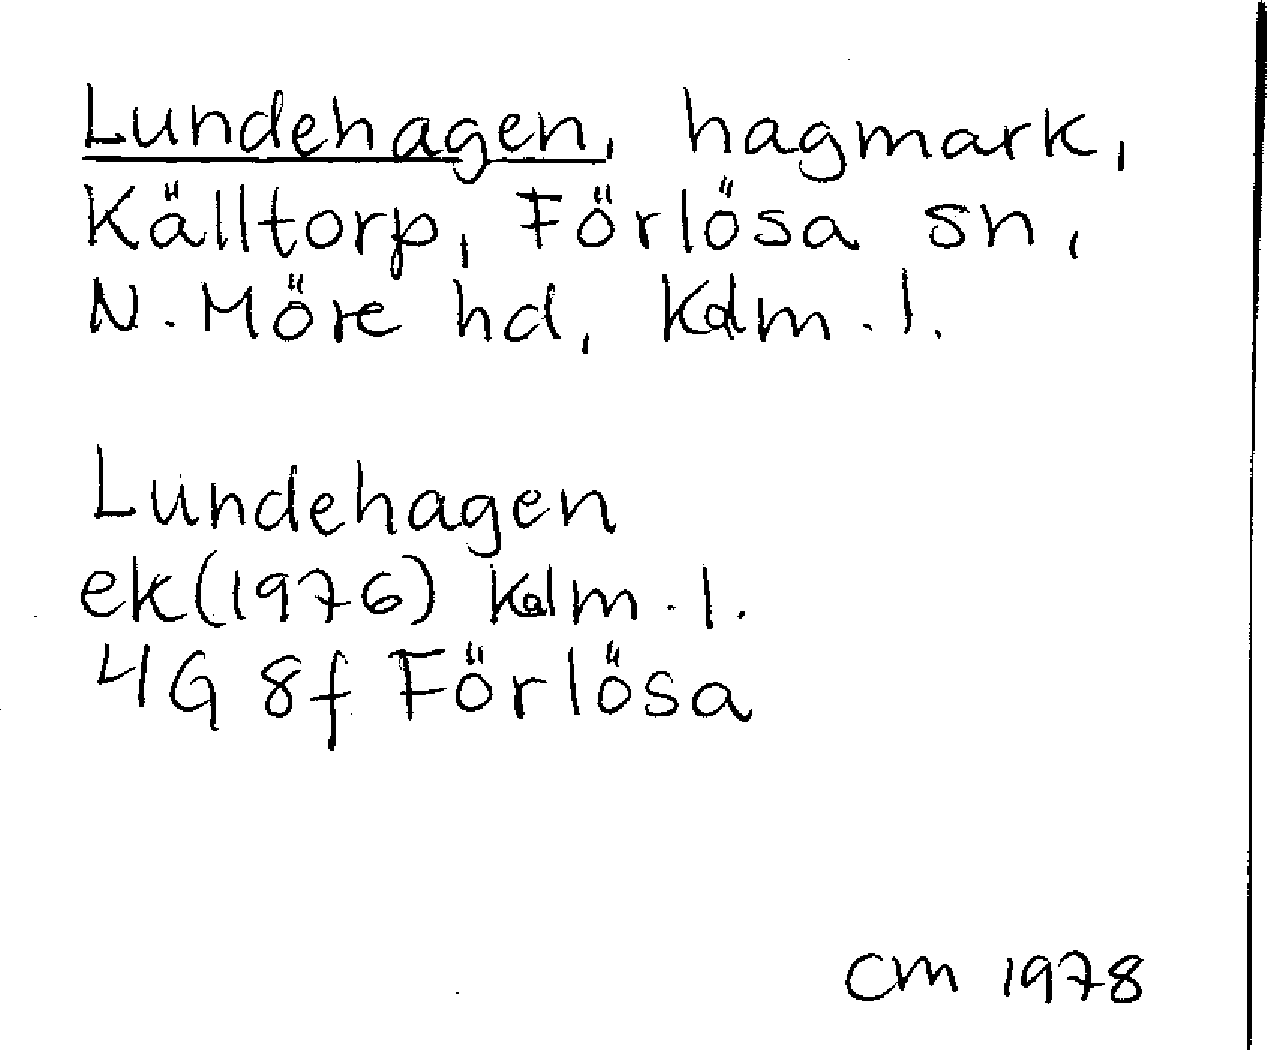 Lundehagen, hagmark,
Källtorp, Förlösa sn,
N. Möre hd, Kalm. l.
Lundehagen
ek(1976) Kalm. l.
4G 8f Förlösa
CM 1978